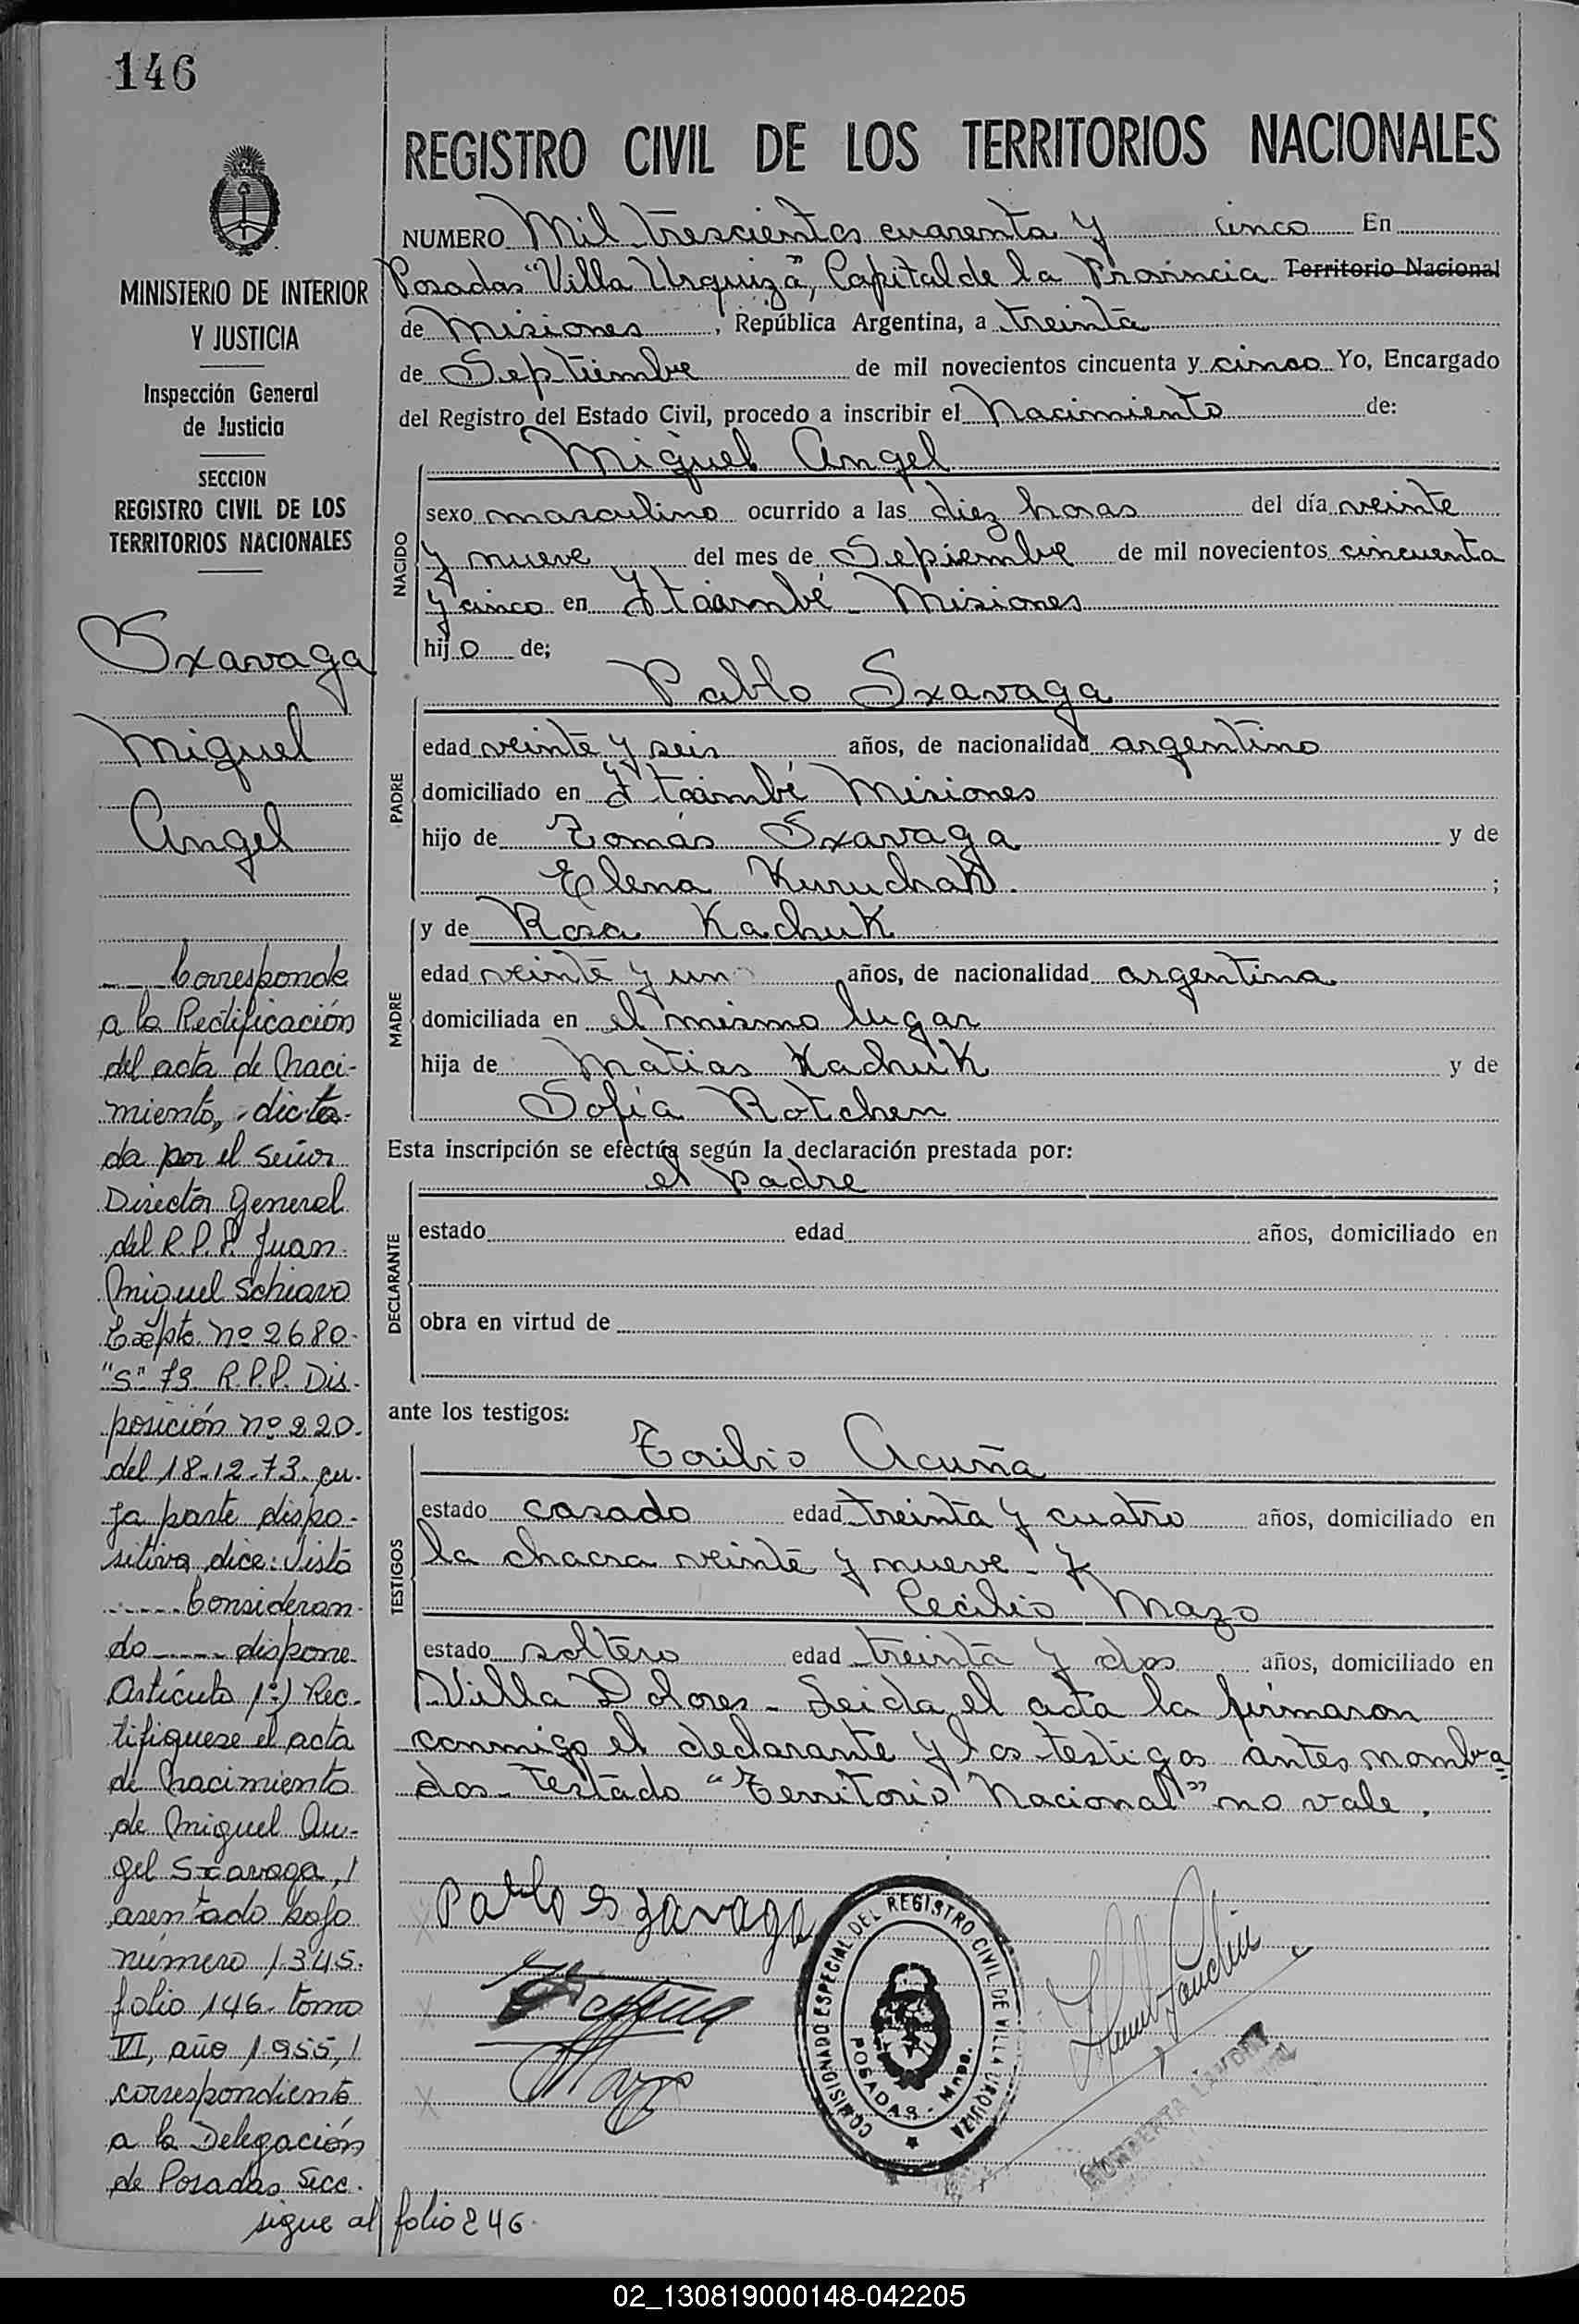 146
REGISTRO CIVIL DE LOS TERRITORIOS NACIONALES
NUMERO Mil trescientos cuarenta y cinco En
Posadas "Villa Urquiza", Capital de la Provincia Territorio Nacional
de Misiones, República Argentina, a treinta
de Septiembre de mil novecientos cincuenta y cinco Yo, Encargado
del Registro del Estado Civil, procedo a inscribir el Nacimiento de:
Miguel Angel
NACIDO
sexo masculino ocurrido a las diez horas del día veinte
y nueve del mes de Sepiembre de mil novecientos cincuenta
y cinco en Itaambé - Misiones
hijo de;
Pablo Sxavaga
PADRE
edad veinte y seis años, de nacionalidad argentino
domiciliado en Itaambé Misiones
hijo de Tomás Sxavaga y de
Elena Kuruchak ;
MADRE
y de Rosa Kachuk
edad veinte y un años, de nacionalidad argentina
domiciliada en el mismo lugar
hija de Matias Kachuk y de
Sofía Rotchen
Esta inscripción se efectúa según la declaración prestada por:
el padre
DECLARANTE
estado edad años, domiciliado en
obra en virtud de
ante los testigos:
Toribio Acuña
TESTIGOS
estado casado edad treinta y cuatro años, domiciliado en
la chacra veinte y nueve - y
Cecilio Mazo
estado soltero edad treinta y dos años, domiciliado en
Villa Dolores - Leida el acta la firmaron
conmigo el declarante y los testigos antes nombra=
dos - testado "Territorio Nacional" no vale.
Pablo Szavaga
Mazo
COMISIONADO ESPECIAL DEL REGISTRO CIVIL DE VILLA URQUIZA
POSADAS - Mnes.
MINISTERIO DE INTERIOR
Y JUSTICIA
Inspección General
de Justicia
SECCION
REGISTRO CIVIL DE LOS
TERRITORIOS NACIONALES
Sxavaga
Miguel
Angel
Corresponde
a la Rectificación
del acta de Naci-
miento, dicta-
da por el señor
Director General
del R.P.P. Juan
Miguel Schiavo
Expte. Nº 2680-
"S" 73 R.P.P. Dis-
posición nº 220.
del 18-12-73. cu-
ya parte dispo-
sitiva dice: Visto
Consideran-
do dispone
Artículo 1º) Rec-
tifiquese el acta
de Nacimiento
de Miguel An-
gel Sxavaga,
asentado bajo
número 1345.
folio 146. tomo
VI, año 1955,
correspondiente
a la Delegación
de Posadas Secc.
sigue al folio 246
02_130819000148-042205